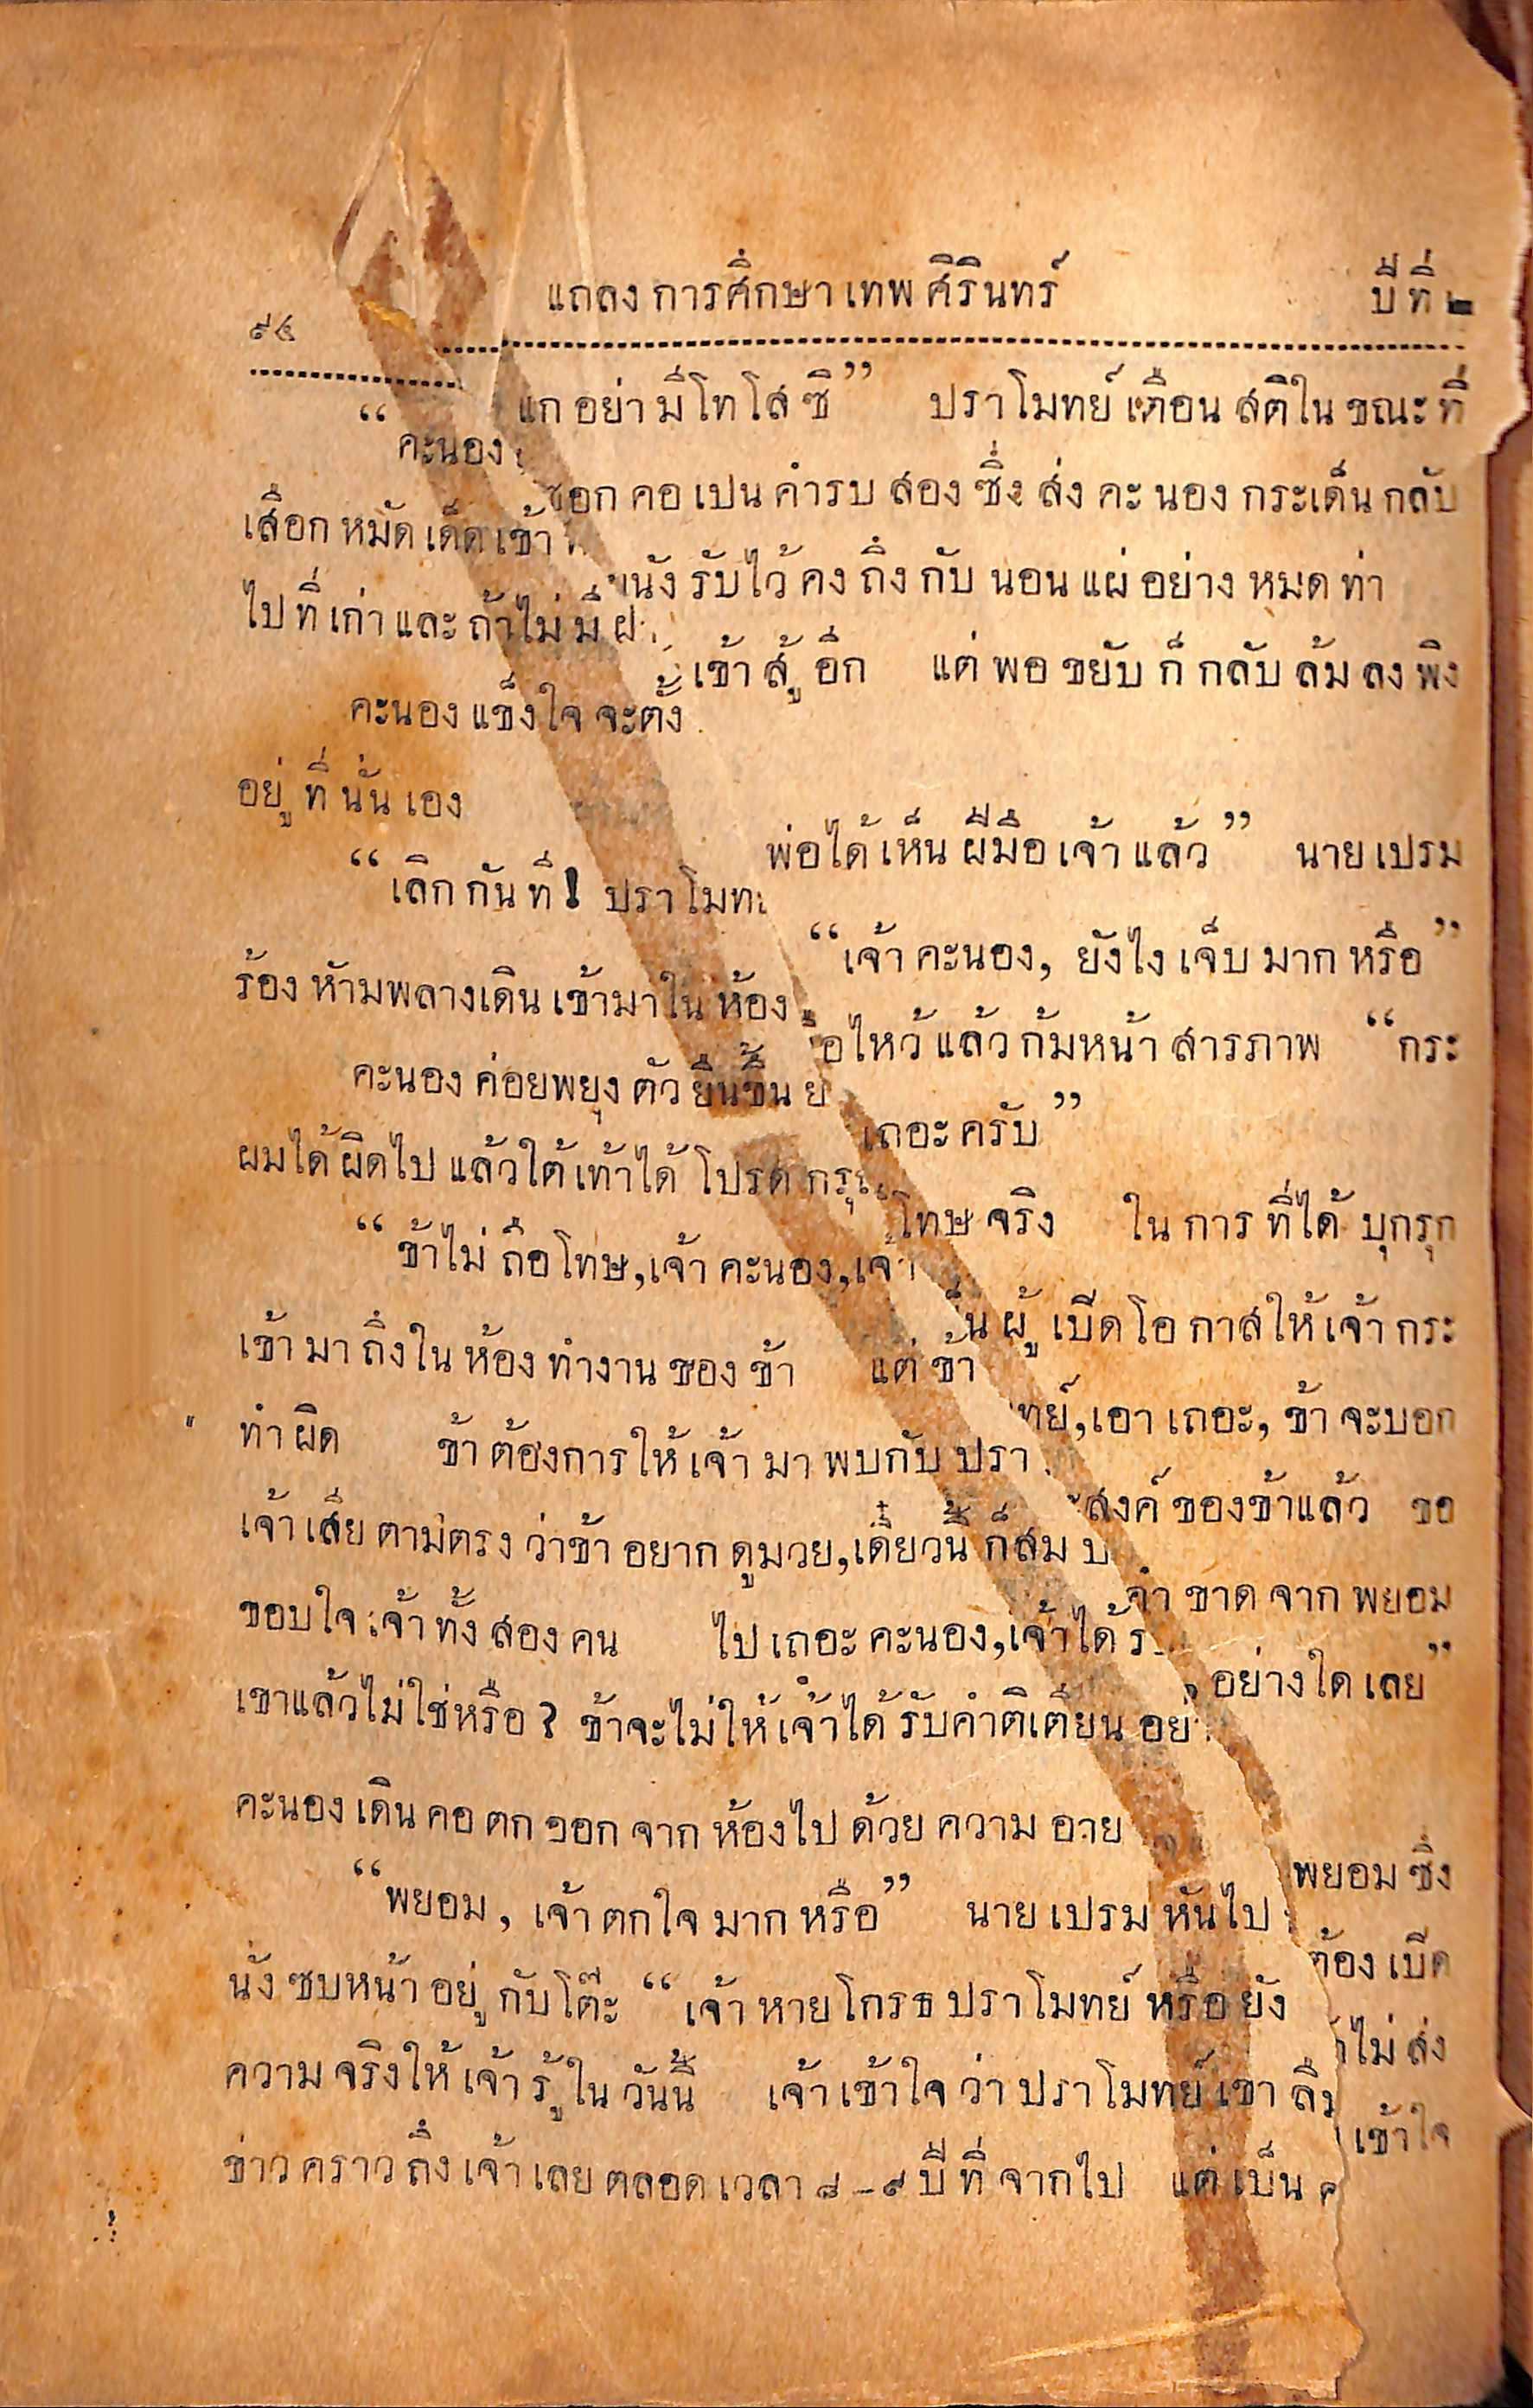 ๙๔ แถลงการศึกษาเทพศิรินทร์ ปีที่ ๒
“คะนอง แกอย่ามีโทโสซี” ปราโมทย์เตือนสติในขณะที่
เสือกหมัดเด็ดเข้า ซอกคอเปนคำรบสองซึ่งส่งคะนองกระเด็นกลับ
ไปที่เก่าและถ้าไม่มีฝาผนังรับไว้คงถึงกับนอนแผ่อย่างหมดท่า
คะนองแข็งใจจะตั้ง เข้าสู้อีก แต่พอขยับก็กลับล้มลงพิง
อยู่ที่นั่นเอง
“เลิกกันที! ปราโมทย์ พ่อได้เห็นฝีมือเจ้าแล้ว” นายเปรม
ร้องห้ามพลางเดินเข้ามาในห้อง “เจ้าคะนอง, ยังไงเจ็บมากหรือ”
คะนองค่อยพยุงตัวยืนขึ้น ไหว้แล้วก้มหน้าสารภาพ “กระ
ผมได้ผิดไปแล้วใต้เท้าได้โปรดกรุณาเถอะครับ”
“ข้าไม่ถือโทษ,เจ้าคะนอง,เจ้า โทษจริง ในการที่ได้บุกรุก
เข้ามาถึงในห้องทำงานของข้า แต่ข้า ผู้เปิดโอกาสให้เจ้ากระ
ทำผิด ข้าต้องการให้เจ้ามาพบกับปราโมทย์,เอาเถอะ, ข้าจะบอก
เจ้าเสียตามตรงว่าข้าอยากดูมวย,เดี๋ยวนี้ก็สมประสงค์ของข้าแล้ว ขอ
ขอบใจเจ้าทั้งสองคน ไปเถอะคะนอง,เจ้าได้ ขาดจากพยอม
เขาแล้วไม่ใช่หรือ? ข้าจะไม่ให้เจ้าได้รับคำติเตียน อย่างใดเลย”
คะนองเดินคอตกออกจากห้องไปด้วยความอาย
“พยอม, เจ้าตกใจมากหรือ” นายเปรมหันไป พยอมซึ่ง
นั่งซบหน้าอยู่กับโต๊ะ “เจ้าหายโกรธปราโมทย์หรือยัง ต้องเปิด
ความจริงให้เจ้ารู้ในวันนี้ เจ้าเข้าใจว่าปราโมทย์เขา ไม่ส่ง
ข่าวคราวถึงเจ้าเลยตลอดเวลา ๘-๙ ปีที่จากไป แต่เป็น เข้าใจ